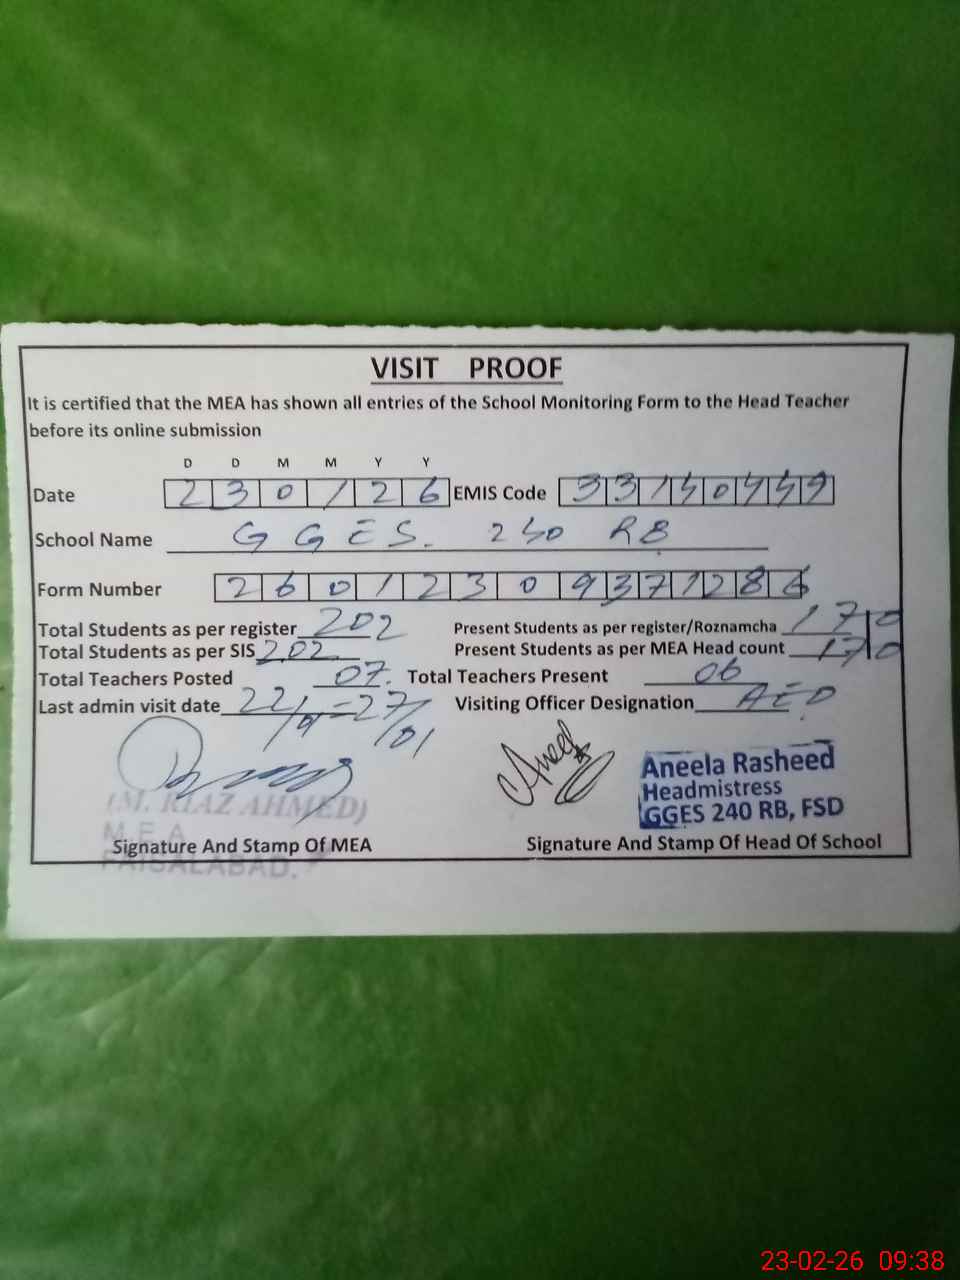 VISIT PROOF
It is certified that the MEA has shown all entries of the School Monitoring Form to the Head Teacher
before its online submission
D D M M Y Y
Date 2 3 0 1 2 6 EMIS Code 3 3 1 4 0 4 4 9
School Name GGES. 240 RB
Form Number 2 6 0 1 2 3 0 9 3 7 1 2 8 6
Total Students as per register 202 Present Students as per register/Roznamcha 170
Total Students as per SIS 202 Present Students as per MEA Head count 170
Total Teachers Posted 07. Total Teachers Present 06
Last admin visit date 22/ 27/01 Visiting Officer Designation AEO
Aneela Rasheed
Headmistress
GGES 240 RB, FSD
(M. RIAZ AHMED)
M.E.A
FAISALABAD.
Signature And Stamp Of MEA Signature And Stamp Of Head Of School
23-02-26 09:38